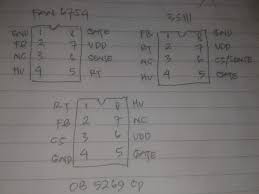 Fan 6754
GND 1 8 GATE
FB 2 7 VDD
NC 3 6 SENSE
HV 4 5 RT
35111
FB 1 8 GND
RT 2 7 VDD
3 6 CS/SENSE
4 5 GATE
RT 1 8 HV
FB 2 7 NC
CS 3 6 VDD
GND 4 5 GATE
OB 5269 CP